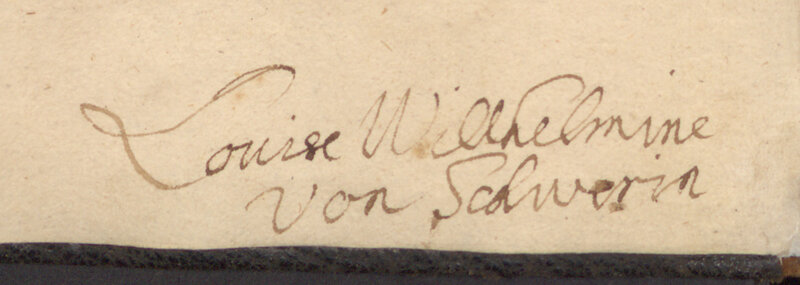 Louise Willhelmine
von Schwerin